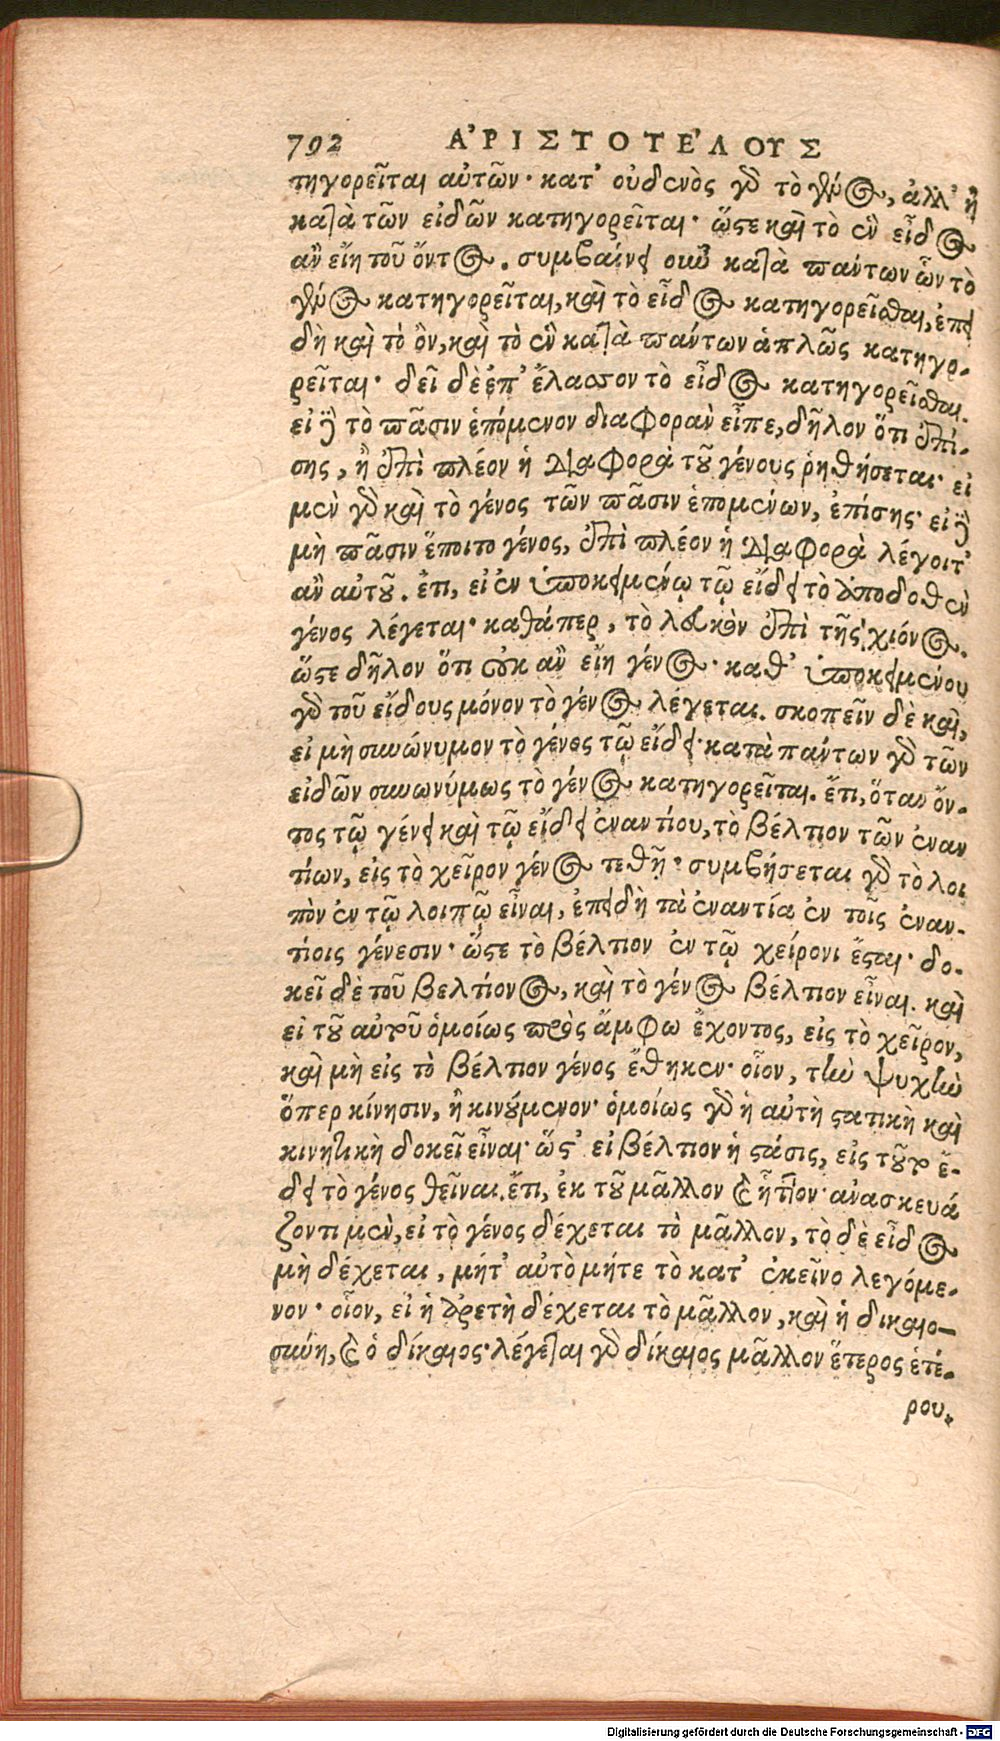 792 ΑʼΡΙΣΤΟΤΕʹΛΟΥΣ
τηγορεῖται αὐτῶν· κατ' οὐδενὸς γὸ τὸ γένος, ἀλλ' ἢ
κατὰ τῶν εἰδῶν κατηγορεῖται· ὥστε καὶ τὸ ἓν εἶδος
ἂν εἴη τοῦ ὄντος. συμβαίνει οὖν κατὰ πάντων ὧν τὸ
γένος κατηγορεῖται, καὶ τὸ εἶδος κατηγορεῖσθαι, ἐπει
δὴ καὶ τὸ ὂν, καὶ τὸ ἓν κατὰ πάντων ἁπλῶς κατηγο-
ρεῖται· δεῖ δὲ ἐπ' ἔλασσον τὸ εἶδος κατηγορεῖσθαι.
εἰ δὲ τὸ πᾶσιν ἑπόμενον διαφορὰν εἶπε, δῆλον ὅτι ἐπί-
σης, ἢ ἐπὶ πλέον ἡ διαφορὰ τοῦ γένους ῥηθήσεται· εἰ
μὲν γὸ καὶ τὸ γένος τῶν πᾶσιν ἑπομένων, ἐπίσης· εἰ δὲ
μὴ πᾶσιν ἕποιτο γένος, ἐπὶ πλέον ἡ διαφορὰ λέγοιτ'
ἂν αὐτοῦ. ἔτι, εἰ ἐν ὑποκειμένῳ τῷ εἴδει τὸ ἀποδοθὲν
γένος λέγεται· καθάπερ, τὸ λευκὸν ἐπὶ τῆς χιόνος.
ὥστε δῆλον ὅτι οὐκ ἂν εἴη γένος· καθ' ὑποκειμένου
γὸ τοῦ εἴδους μόνον τὸ γένος λέγεται. σκοπεῖν δὲ καὶ,
εἰ μὴ συνώνυμον τὸ γένος τῷ εἴδει· κατὰ πάντων γὸ τῶν
εἰδῶν συνωνύμως τὸ γένος κατηγορεῖται. ἔτι, ὅταν ὄν-
τος τῷ γένει καὶ τῷ εἴδει ἐναντίου, τὸ βέλτιον τῶν ἐναν
τίων, εἰς τὸ χεῖρον γένος τεθῇ· συμβήσεται γὸ τὸ λοι
πὸν ἐν τῷ λοιπῷ εἶναι, ἐπειδὴ τὰ ἐναντία ἐν τοῖς ἐναν-
τίοις γένεσιν· ὥστε τὸ βέλτιον ἐν τῷ χείρονι ἔσται· δο-
κεῖ δὲ τοῦ βελτίονος, καὶ τὸ γένος βέλτιον εἶναι. καὶ
εἰ τοῦ αὐτοῦ ὁμοίως πρὸς ἄμφω ἔχοντος, εἰς τὸ χεῖρον,
καὶ μὴ εἰς τὸ βέλτιον γένος ἔθηκεν· οἷον, τὴν ψυχὴν
ὅπερ κίνησιν, ἢ κινούμενον· ὁμοίως γὸ ἡ αὐτὴ στατικὴ καὶ
κινητικὴ δοκεῖ εἶναι· ὥστ' εἰ βέλτιον ἡ στάσις, εἰς τοῦτο ἔ-
δει τὸ γένος θεῖναι. ἔτι, ἐκ τοῦ μᾶλλον καὶ ἧττον· ἀνασκευά
ζοντι μὲν, εἰ τὸ γένος δέχεται τὸ μᾶλλον, τὸ δὲ εἶδος
μὴ δέχεται, μήτ' αὐτὸ μήτε τὸ κατ' ἐκεῖνο λεγόμε-
νον· οἷον, εἰ ἡ ἀρετὴ δέχεται τὸ μᾶλλον, καὶ ἡ δικαιο-
σύνη, καὶ ὁ δίκαιος· λέγεται γὸ δίκαιος μᾶλλον ἕτερος ἑτέ-
ρου.
Digitalisierung gefördert durch die Deutsche Forschungsgemeinschaft - DFG